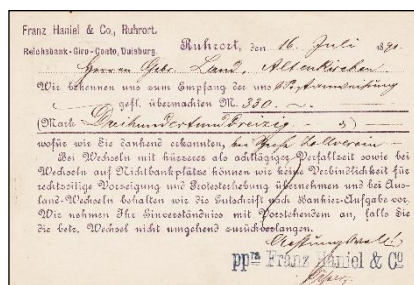 Franz Haniel & Co., Ruhrort.
Reichsbank-Giro-Conto, Duisburg.
Ruhrort, den 16. Juli 1890
Herren Gebr. Land, Altenkirchen
Wir bekennen uns zum Empfang der uns p. Postanweisung
gefl. übermachten M. 330. —
(Mark Dreihundertunddreizig — )
wofür wir Sie dankend erkannten,
Bei Wechseln mit kürzerer als achttägiger Verfallzeit sowie bei
Wechseln auf Nichtbankplätze können wir keine Verbindlichkeit für
rechtzeitige Vorzeigung und Protesterhebung übernehmen und bei Aus-
land-Wechseln behalten wir die Gutschrift nach Bankier-Aufgabe vor.
Wir nehmen Ihr Einverständniss mit Vorstehendem an, falls Sie
die betr. Wechsel nicht umgehend zurückverlangen.
Achtungsvoll!
ppra Franz Haniel & Co